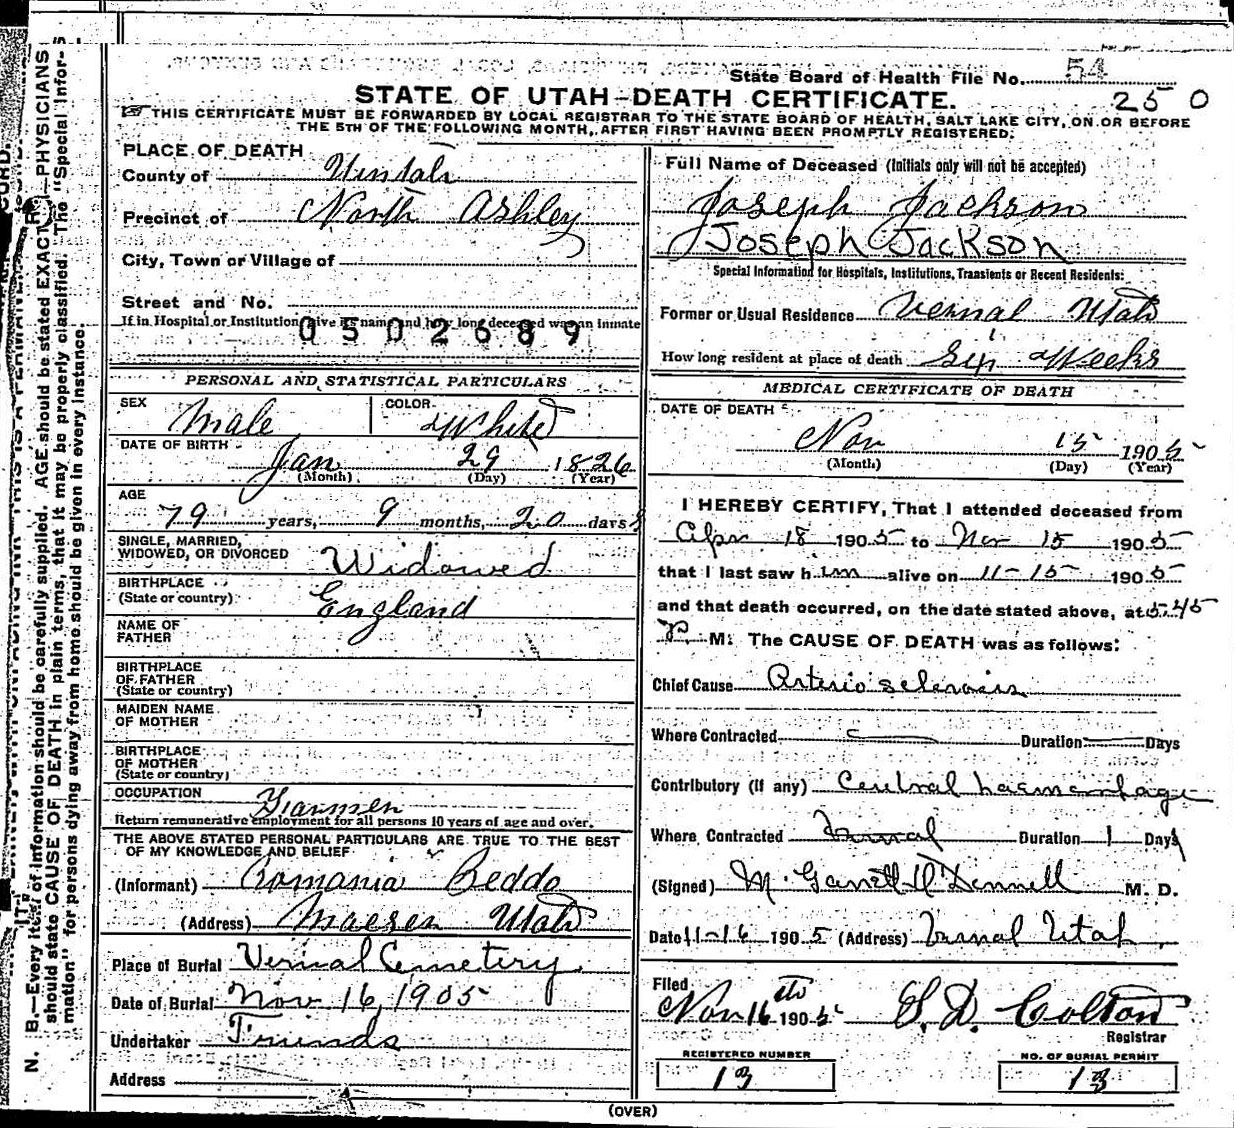 State Board of Health File No. 54
250
STATE OF UTAH—DEATH CERTIFICATE.
THIS CERTIFICATE MUST BE FORWARDED BY LOCAL REGISTRAR TO THE STATE BOARD OF HEALTH, SALT LAKE CITY, ON OR BEFORE
THE 5TH OF THE FOLLOWING MONTH, AFTER FIRST HAVING BEEN PROMPTLY REGISTERED.
PLACE OF DEATH
County of Uintah
Precinct of North Ashley
City, Town or Village of
Street and No.
If in Hospital or Institution give its name and how long deceased was an inmate
0502689
PERSONAL AND STATISTICAL PARTICULARS
SEX Male COLOR White
DATE OF BIRTH Jan 29 1826
(Month) (Day) (Year)
AGE
79 years, 9 months, 20 days
SINGLE, MARRIED,
WIDOWED, OR DIVORCED Widowed
BIRTHPLACE
(State or country) England
NAME OF
FATHER
BIRTHPLACE
OF FATHER
(State or country)
MAIDEN NAME
OF MOTHER
BIRTHPLACE
OF MOTHER
(State or country)
OCCUPATION Farmer
Return remunerative employment for all persons 10 years of age and over.
THE ABOVE STATED PERSONAL PARTICULARS ARE TRUE TO THE BEST
OF MY KNOWLEDGE AND BELIEF
(Informant) Romania Beddo
(Address) Maeser Utah
Place of Burial Vernal Cemetery
Date of Burial Nov 16, 1905
Undertaker Friends
Address
Full Name of Deceased (Initials only will not be accepted)
Joseph Jackson
Joseph Jackson
Special Information for Hospitals, Institutions, Transients or Recent Residents:
Former or Usual Residence Vernal Utah
How long resident at place of death Six Weeks
MEDICAL CERTIFICATE OF DEATH
DATE OF DEATH
Nov 15 1905
(Month) (Day) (Year)
I HEREBY CERTIFY, That I attended deceased from
Apr 18 1905 to Nov 15 1905
that I last saw him alive on 11-15 1905
and that death occurred, on the date stated above, at 5.45
P. M. The CAUSE OF DEATH was as follows:
Chief Cause Arterio sclerosis
Where Contracted Duration Days
Contributory (if any) Cerebral haemorrhage
Where Contracted Vernal Duration 1 Days
(Signed) M. Garrett O'Dennell M. D.
Date 11-16 1905 (Address) Vernal Utah
Filed
Nov 16th 1905 S. D. Colton
Registrar
REGISTERED NUMBER
13
NO. OF BURIAL PERMIT
13
(OVER)
N. B.—Every item of information should be carefully supplied. AGE should be stated EXACTLY. PHYSICIANS
should state CAUSE OF DEATH in plain terms, that it may be properly classified. The "Special Infor-
mation" for persons dying away from home should be given in every instance.